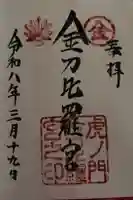 奉拝
金
金刀比羅宮
虎ノ門
令和八年三月十九日